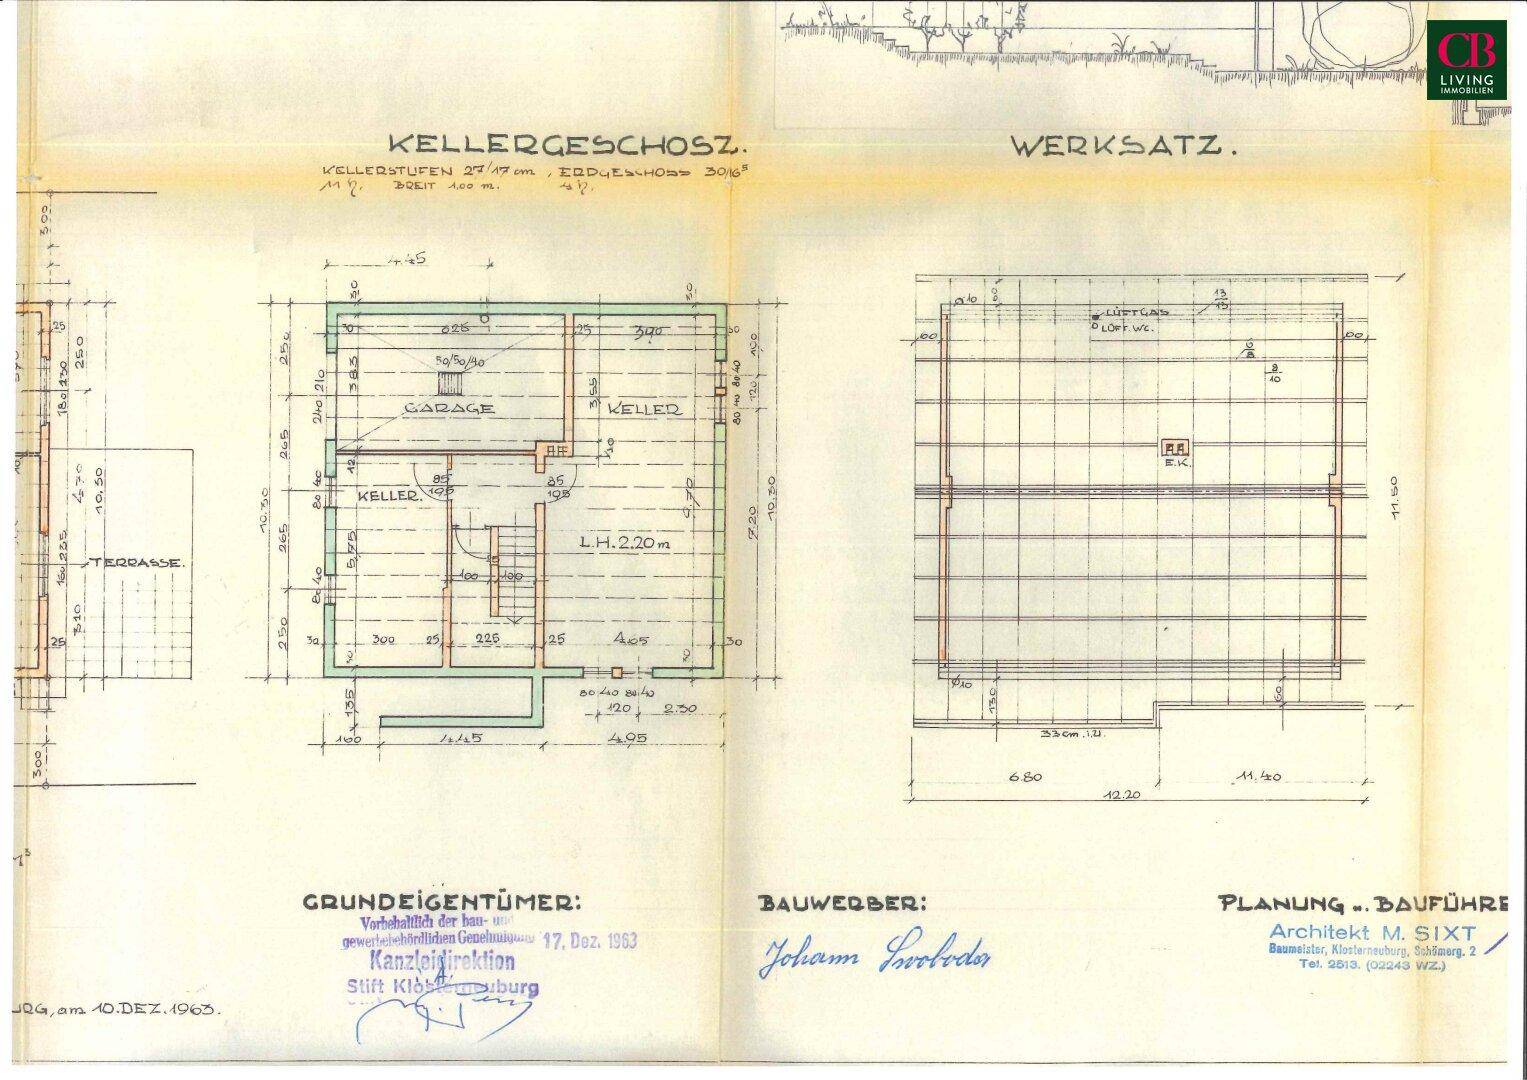 CB
LIVING
IMMOBILIEN
KELLERGESCHOSZ.
KELLERSTUFEN 27/17 cm, ERDGESCHOSS 30/16⁵
BREIT 1.00 m.
WERKSATZ.
4.45
300
30
30
625
25
340
30
50/50/40
383
GARAGE
355
KELLER
10
250
240 210
265
12
85
195
85
195
KELLER.
80 40
10.30
265
5,75
80 40
250
L.H. 2.20 m
100
100
30
300
25
225
25
4.05
30
135
80 40 80 40
120
2.30
160
4.45
4.95
100
80 40
120
80 40
7.20
10.30
25
250
180 230
470
10,30
160 235
TERRASSE.
310
25
300
Ø10
60
13
13
LÜFT GAS
LÜFT. WC.
60
60
8
10
E.K.
11.50
Ø10
130
60
33 cm i.U.
6.80
11.40
12.20
GRUNDEIGENTÜMER:
Vorbehaltlich der bau- und
gewerbebehördlichen Genehmigung 17. Dez. 1963
Kanzleidirektion
Stift Klosterneuburg
BAUWERBER:
Johann Swoboda
PLANUNG u. BAUFÜHRE
Architekt M. SIXT
Baumeister, Klosterneuburg, Schömerg. 2
Tel. 2513. (02243 WZ.)
URG, am 10. DEZ. 1963.